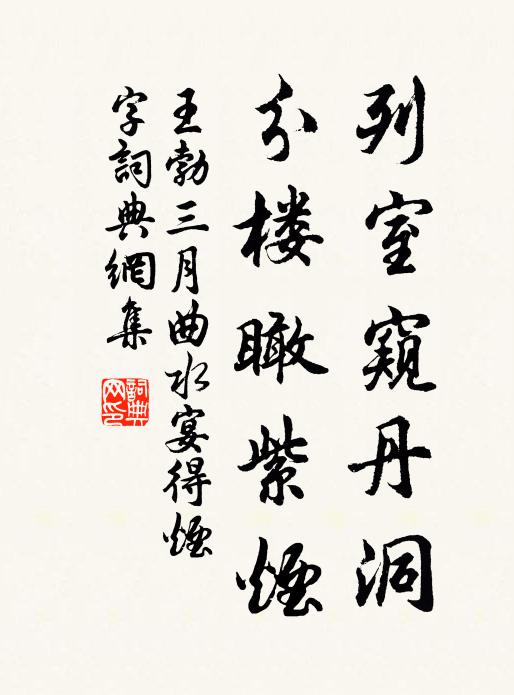 列室窺丹洞
分楼瞰紫煙
王勃三月曲水宴得煙
字詞典網集
詞典網印